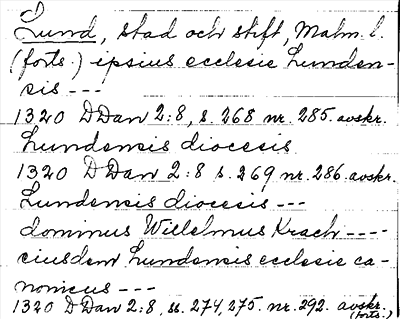 Lund, stad och stift, Malm. l.
(forts.) ipsius ecclesie Lunden-
sis ---
1320 DDan 2:8, s. 268 nr. 285. avskr.
Lundensis diocesis
1320 DDan 2:8 s. 269 nr. 286. avskr.
Lundensis diocesis ---
dominus Willelmus Krach ----
eiusdem Lundensis ecclesie ca-
nonicus ---
1320 DDan 2:8, ss. 274, 275. nr. 292. avskr.
(forts.)